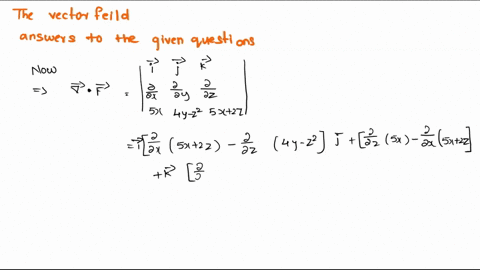 The vector feild
answers to the given questions
Now
=> ∇⃗ • F⃗ = | i⃗ j⃗ k⃗ |
| ∂/∂x ∂/∂y ∂/∂z |
| 5x 4y-z² 5x+2z |
= i⃗ [∂/∂x (5x+2z) - ∂/∂z (4y-z²)] j⃗ + [∂/∂z (5x) - ∂/∂x (5x+2z]
+ k⃗ [∂/∂